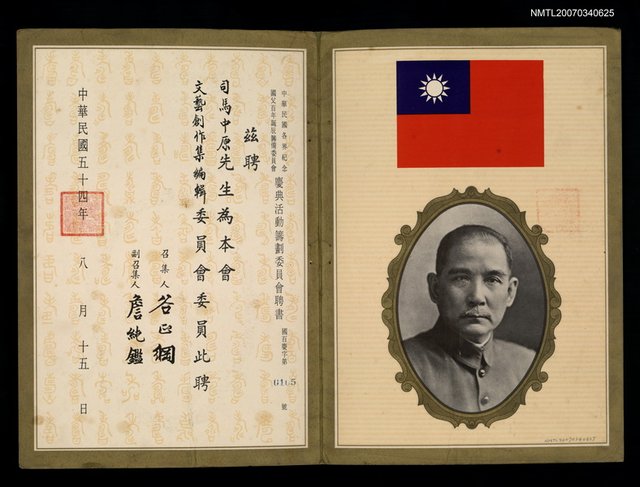 NMTL20070340625
中華民國各界紀念
國父百年誕辰籌備委員會
慶典活動籌劃委員會聘書
國百慶字第
0105
號
茲聘
司馬中原先生為本會
文藝創作集編輯委員會委員此聘
召集人 谷正綱
副召集人 詹純鑑
中華民國五十四年 八月十五日